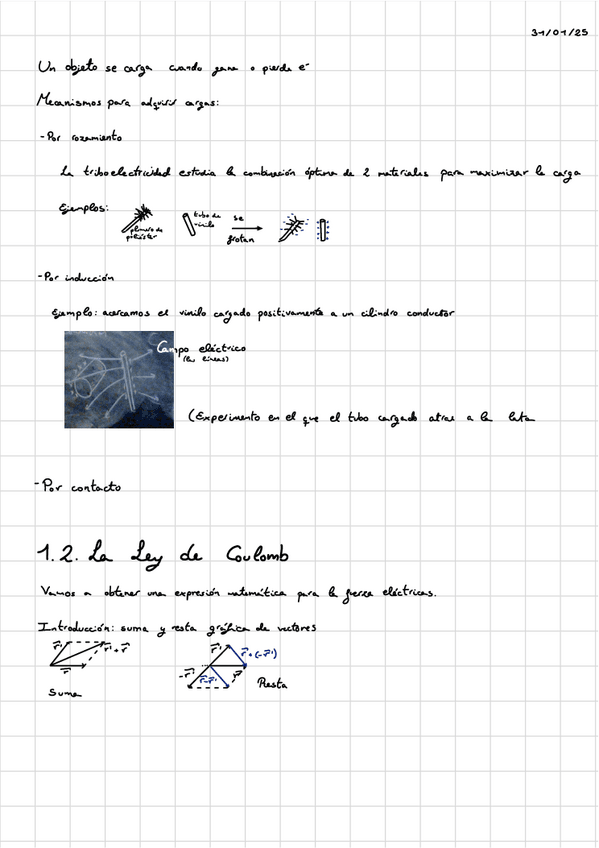 31/01/25
Un objeto se carga cuando gana o pierde e⁻
Mecanismos para adquirir cargas:
-Por rozamiento
La triboelectricidad estudia la combinación óptima de 2 materiales para maximizar la carga
Ejemplos:
plumero de poliéster
tubo de vinilo
se frotan
-Por inducción
Ejemplo: acercamos el vinilo cargado positivamente a un cilindro conductor
Campo eléctrico
(las líneas)
(Experimento en el que el tubo cargado atrae a la lata
-Por contacto
1.2. La Ley de Coulomb
Vamos a obtener una expresión matemática para la fuerza eléctricas.
Introducción: suma y resta gráfica de vectores
r⃗' r⃗'+r⃗
r⃗
Suma
r⃗' r⃗+(-r⃗')
-r⃗' r⃗-r⃗' r⃗
Resta